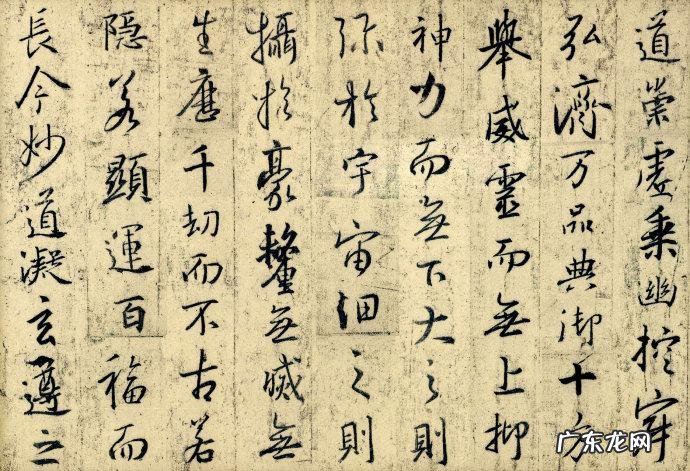 道崇虚乘幽控寂
弘濟万品典御十方
舉威靈而無上抑
神力而無下大之則
弥於宇宙細之則
攝於豪釐無滅無
生歷千劫而不古若
隱若顯運百福而
長今妙道凝玄遵之
广东龙网